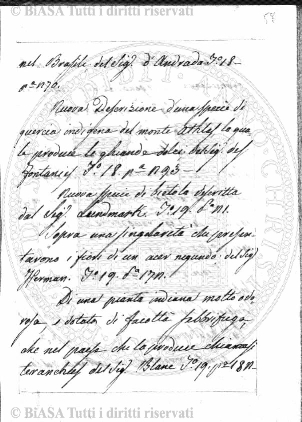 © BiASA Tutti i diritti riservati
nel Brasile del Sig.r d'Andrada T.o 18-
n.o 1170.
Nuova Descrizione d'una specie di
quercia indigena del monte Athlas la qua
le produce le ghiande dolce del Sig. des
fontaines T.o 18. n.o 1193-
Nuova specie di Betola descritta
dal Sig.r Lundmark T.o 19. 1.
Sopra una singolarità che presen-
tarono i fiori di un acer negundo del Sig.
Herman. T.o 19. 17
Di una pianta indiana molto odo
rosa, e dotata di facoltà febbrifuga,
che nel paese che la produce chiamasi
del Sig.r Blane T.o 19. 18
© BiASA Tutti i diritti riservati